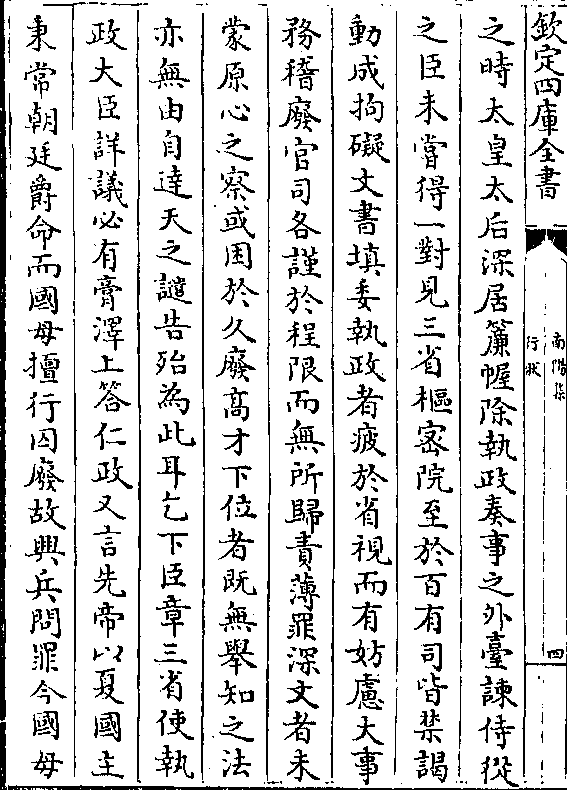 欽定四庫全書
南陽集
行狀
四
之時太皇太后深居簾幄除執政奏事之外臺諫侍從
之臣未嘗得一對見三省樞密院至於百有司皆禁謁
動成拘礙文書填委執政者疲於省視而有妨慮大事
務稽廢官司各謹於程限而無所歸責薄罪深文者未
蒙原心之察或困於久廢高才下位者既無舉知之法
亦無由自達天之譴告殆為此耳乞下臣章三省使執
政大臣詳議必有膏澤上答仁政又言先帝以夏國主
秉常朝廷爵命而國母擅行囚廢故興兵問罪今國母